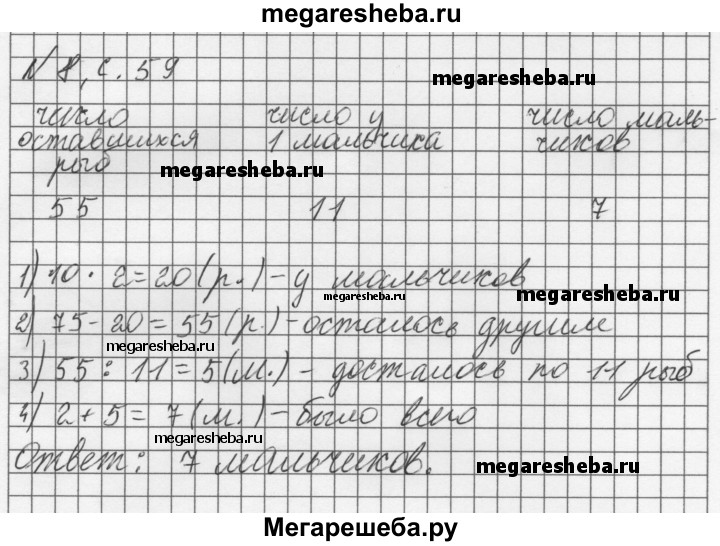 megaresheba.ru
N 8, с. 59
megaresheba.ru
число число у число маль-
оставшихся 1 мальчика чиков
рыб
megaresheba.ru
55 11 7
1) 10 · 2 = 20 (р.) - у мальчиков
megaresheba.ru
megaresheba.ru
2) 75 - 20 = 55 (р.) - осталось другим
megaresheba.ru
3) 55 : 11 = 5 (м.) - досталось по 11 рыб
4) 2 + 5 = 7 (м.) - было всего
megaresheba.ru
Ответ: 7 мальчиков.
megaresheba.ru
Мегарешеба.ру